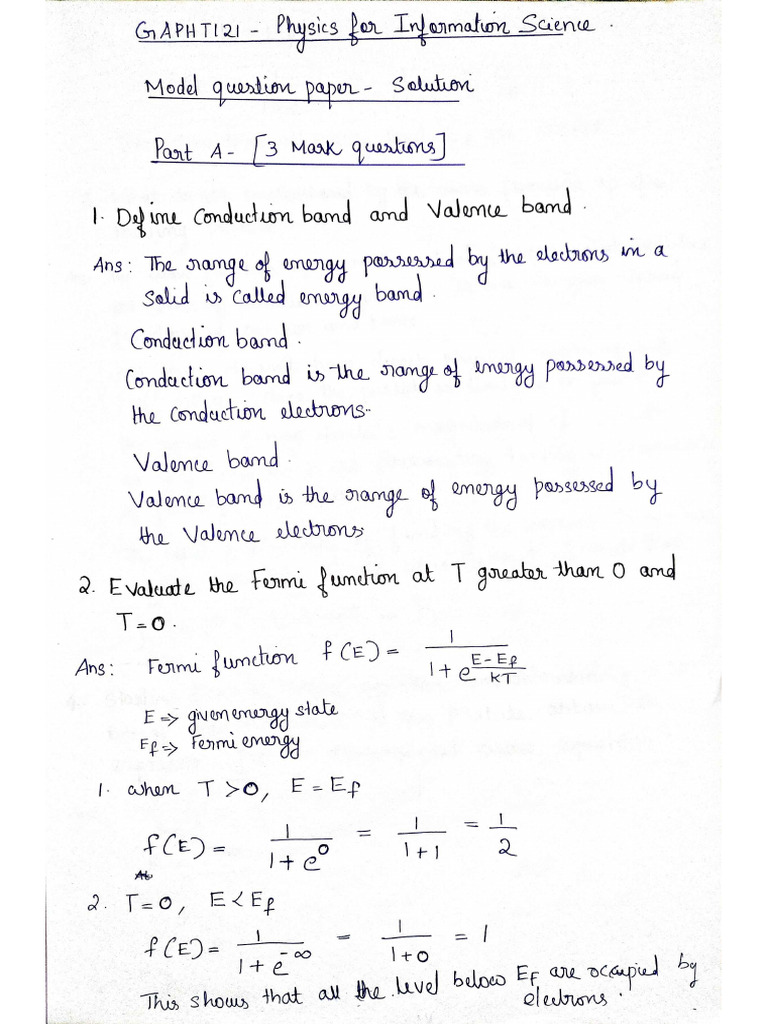 GAPHT121 - Physics for Information Science.
Model question paper - Solution
Part A - [3 Mark questions]
1. Define Conduction band and Valence band.
Ans: The range of energy possessed by the electrons in a
Solid is called energy band.
Conduction band.
Conduction band is the range of energy possessed by
the conduction electrons.
Valence band.
Valence band is the range of energy possessed by
the Valence electrons
2. Evaluate the Fermi function at T greater than 0 and
T=0.
Ans: Fermi function f(E) = 1 / (1 + e^((E-Ef)/KT))
E => given energy state
Ef => Fermi energy
1. when T >0, E = Ef
f(E) = 1 / (1 + e^0) = 1 / (1+1) = 1/2
2. T=0, E<Ef
f(E) = 1 / (1 + e^-∞) = 1 / (1+0) = 1
This shows that all the level below Ef are occupied by
electrons.